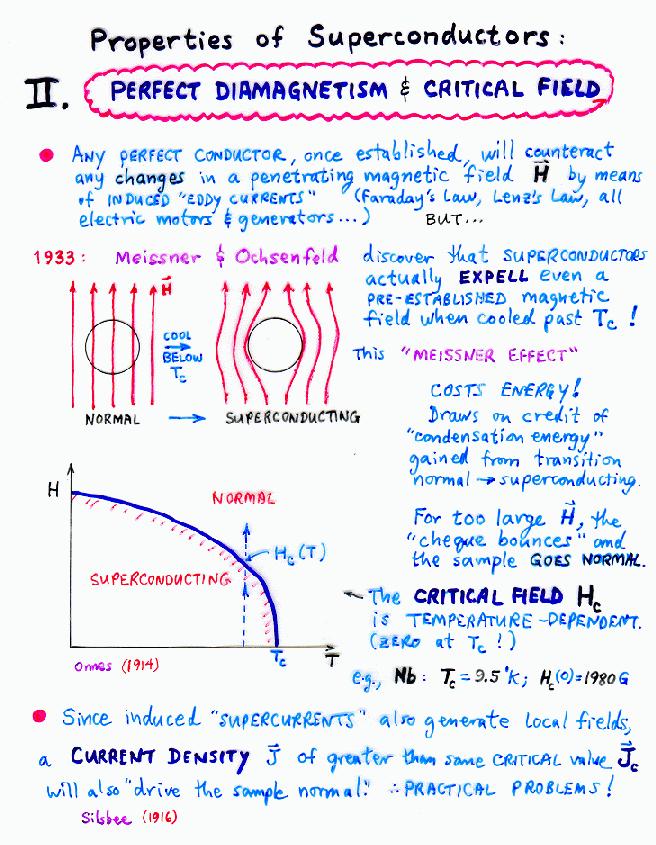 Properties of Superconductors:
II. PERFECT DIAMAGNETISM & CRITICAL FIELD
● ANY PERFECT CONDUCTOR, once established, will counteract
any changes in a penetrating magnetic field H⃗ by means
of INDUCED "EDDY CURRENTS" (Faraday's Law, Lenz's Law, all
electric motors & generators...) BUT...
1933: Meissner & Ochsenfeld discover that SUPERCONDUCTORS
actually EXPELL even a
PRE-ESTABLISHED magnetic
field when cooled past Tc !
H⃗
COOL
BELOW
Tc
NORMAL → SUPERCONDUCTING
This "MEISSNER EFFECT"
COSTS ENERGY!
Draws on credit of
"condensation energy"
gained from transition
normal → superconducting.
For too large H⃗, the
"cheque bounces" and
the sample GOES NORMAL.
H
NORMAL
Hc(T)
SUPERCONDUCTING
Tc
T
Onnes (1914)
← The CRITICAL FIELD Hc
is TEMPERATURE-DEPENDENT.
(ZERO at Tc !)
e.g., Nb: Tc = 9.5°K; Hc(0)=1980 G
● Since induced "SUPERCURRENTS" also generate local fields,
a CURRENT DENSITY J⃗ of greater than some CRITICAL value J⃗c
will also "drive the sample normal." ∴ PRACTICAL PROBLEMS!
Silsbee (1916)